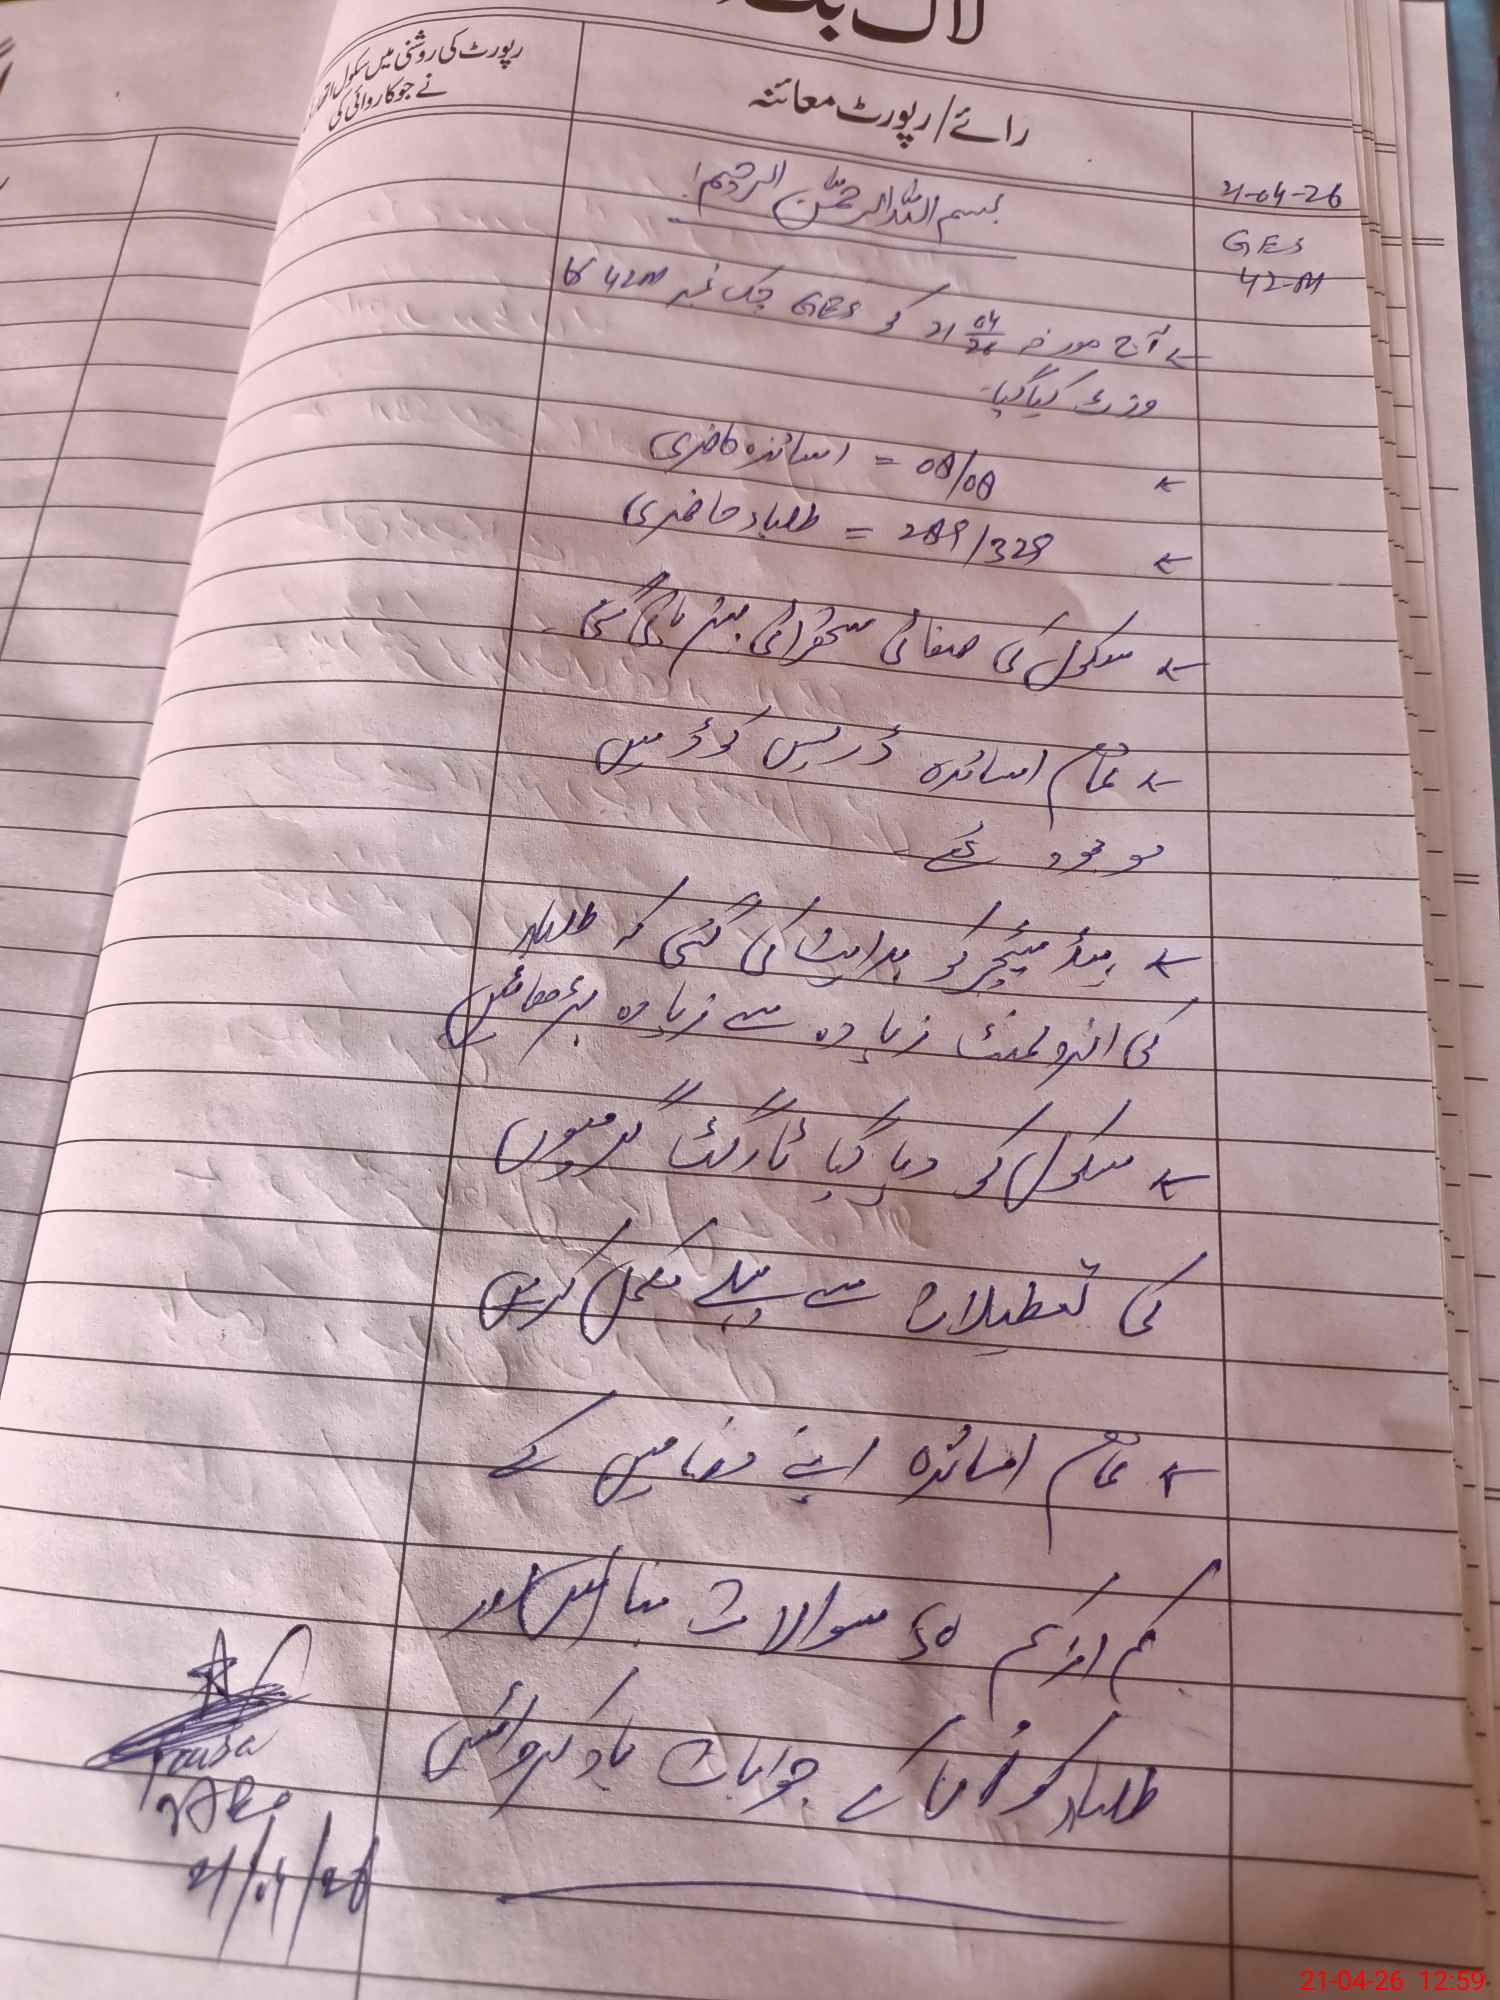 لاگ بک
رائے/رپورٹ معائنہ
رپورٹ کی روشنی میں سکول
نے جو کاروائی کی
21-04-26
GES
42-M
بسم اللہ الرحمٰن الرحیم!
← آج مورخہ 21 04/26 کو GES چک نمبر 42M کا
وزٹ کیا گیا۔
← 08/08 = اساتذہ حاضری
← 289/329 = طلباء حاضری
← سکول کی صفائی ستھرائی بہتر پائی گئی۔
← تمام اساتذہ ڈریس کوڈ میں
موجود تھے۔
← ہیڈ ٹیچر کو ہدایت کی گئی کہ طلباء
کی انرولمنٹ زیادہ سے زیادہ بڑھائیں
← سکول کو دیا گیا ٹارگٹ گرمیوں
کی تعطیلات سے پہلے مکمل کریں
← تمام اساتذہ اپنے مضامین کے
کم از کم 50 سوالات بنائیں اور
طلباء کو ان کے جوابات یاد کروائیں
21/04/26
21-04-26 12:59